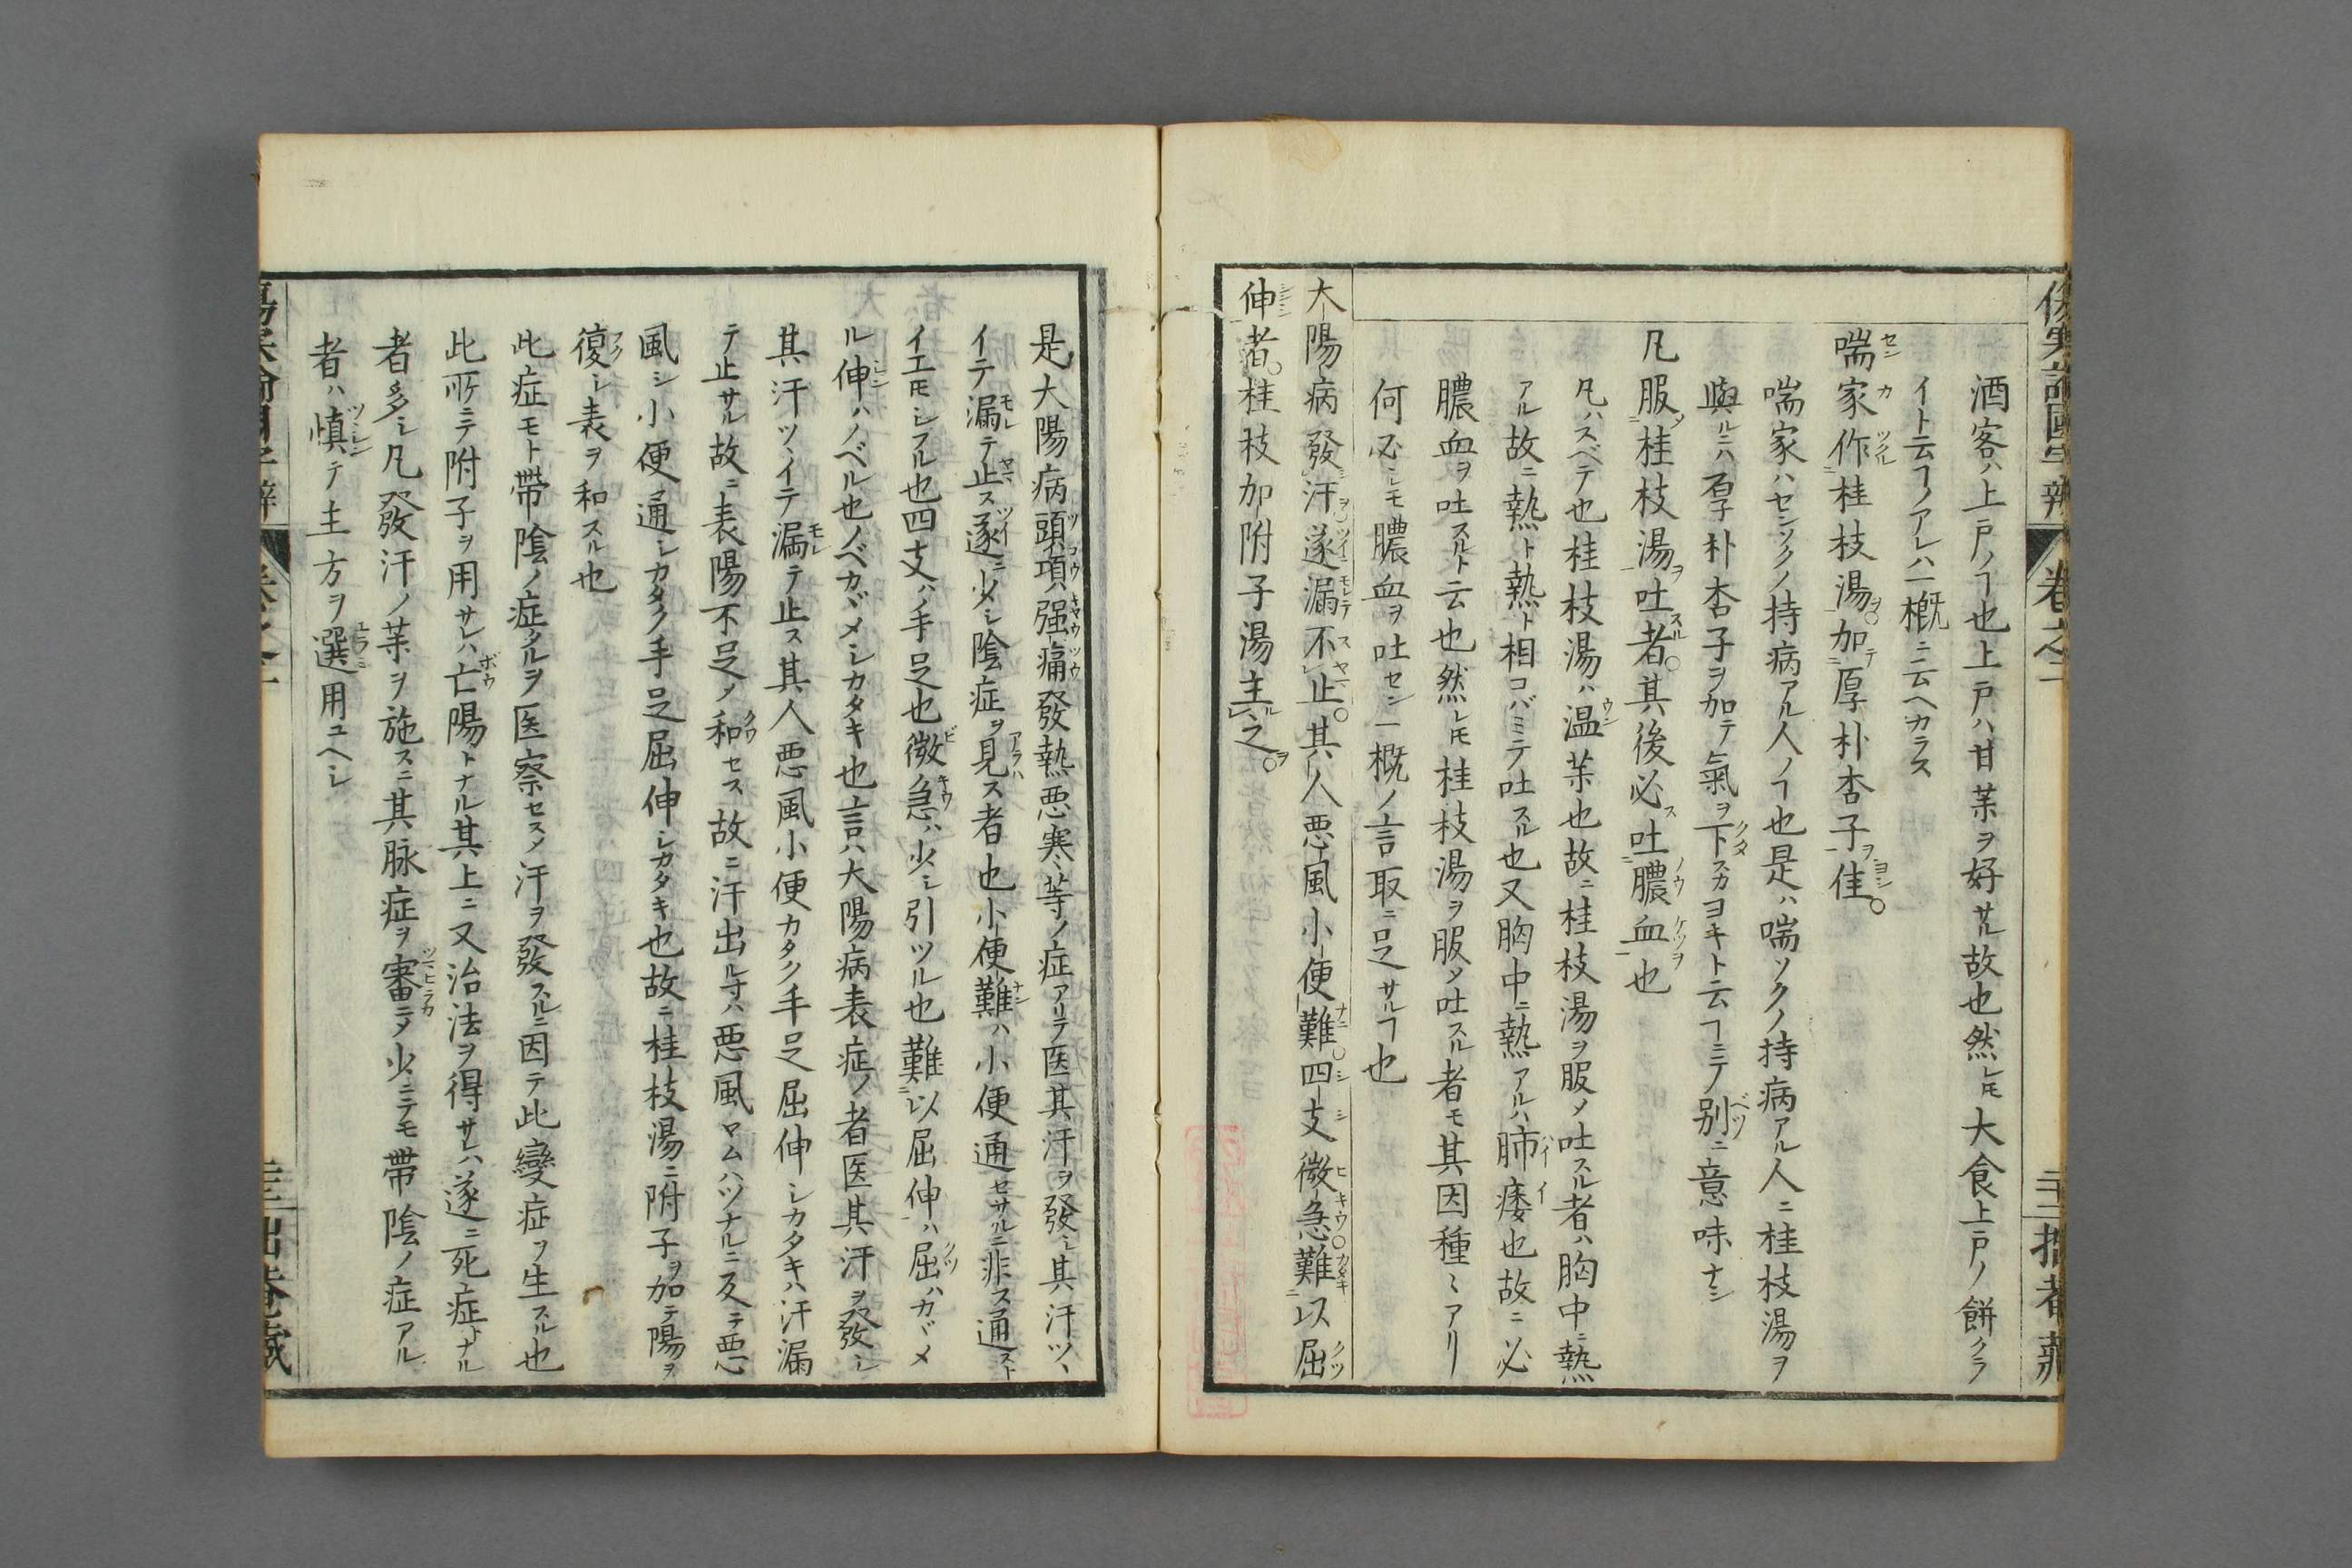 酒客ハ上戸ノヿ也上戸ハ甘薬ヲ好サル故也然レ𪜈大食上戸ノ餅クラ
イト云ヿノアレハ一概ニ云ヘカラス
喘家作桂枝湯加厚朴杏子佳
喘家ハセンソクノ持病アル人ノヿ也是ハ喘ソクノ持病アル人ニ桂枝湯ヲ
與ルニハ厚朴杏子ヲ加テ氣ヲ下スカヨキト云ヿニテ別ニ意味ナシ
凡服桂枝湯吐者其後必吐膿血也
凡ハスベテ也桂枝湯ハ温薬也故ニ桂枝湯ヲ服メ吐スル者ハ胸中ニ熱
アル故ニ熱ト熱ト相コバミテ吐スル也又胸中ニ熱アルハ肺痿也故ニ必
膿血ヲ吐スルト云也然レ𪜈桂枝湯ヲ服メ吐スル者モ其因種〻アリ
何必シモ膿血ヲ吐セン一概ノ言取ニ足サルヿ也
大陽病發汗遂漏不止其人悪風小便難四支微急難以屈
伸者桂枝加附子湯主之
是大陽病頭項强痛發熱悪寒等ノ症アリテ医其汗ヲ發シ其汗ツヽ
イテ漏テ止ス遂ニ少シ陰症ヲ見ス者也小便難ハ小便通セサルニ非ス通スト
イエ𪜈シフル也四支ハ手足也微急ハ少シ引ツル也難以屈伸ハ屈ハカヾメ
ル伸ハノベル也ノベカヾメシカタキ也言ハ大陽病表症ノ者医其汗ヲ發シ
其汗ツヽイテ漏テ止ス其人悪風小便カタク手足屈伸シカタキハ汗漏
テ止サル故ニ表陽不足ノ和セス故ニ汗出ル寸ハ悪風ヤムハツナルニ反テ悪
風シ小便通シカタク手足屈伸シカタキ也故ニ桂枝湯ニ附子ヲ加テ陽ヲ
復シ表ヲ和スル也
此症モト帶陰ノ症タルヲ医察セスメ汗ヲ發スルニ因テ此變症ヲ生スル也
此所ニテ附子ヲ用サレハ亡陽トナル其上ニ又治法ヲ得サレハ遂ニ死症トナル
者多シ凡發汗ノ薬ヲ施スニ其脉症ヲ審ニメ少ニテモ帶陰ノ症アル
者ハ慎テ主方ヲ選用ユヘシ